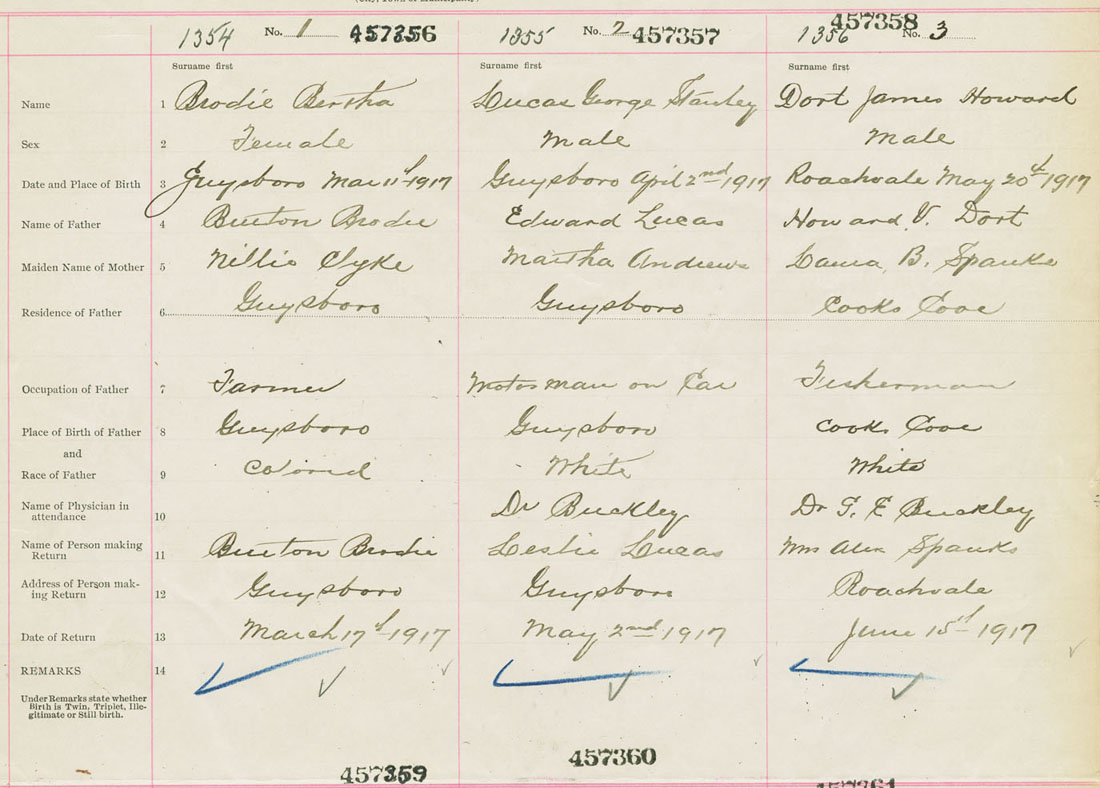 1354 No. 1 457356 1355 No. 2 457357 1356 457358 No. 3
Surname first Surname first Surname first
Name 1 Brodie Bertha Lucas George Stanley Dort James Howard
Sex 2 Female Male Male
Date and Place of Birth 3 Guysboro Mar 11th 1917 Guysboro April 2nd 1917 Roachvale May 20th 1917
Name of Father 4 Burton Brodie Edward Lucas Howard V. Dort
Maiden Name of Mother 5 Nillie Clyke Martha Andrews Laura B. Spanks
Residence of Father 6 Guysboro Guysboro Cooks Cove
Occupation of Father 7 Farmer Motorman on Car Fisherman
Place of Birth of Father 8 Guysboro Guysboro Cooks Cove
and
Race of Father 9 Colored White White
Name of Physician in
attendance 10 Dr Buckley Dr G. E Buckley
Name of Person making
Return 11 Burton Brodie Leslie Lucas Mrs Alex Spanks
Address of Person mak-
ing Return 12 Guysboro Guysboro Roachvale
Date of Return 13 March 17th 1917 May 2nd 1917 June 15th 1917
REMARKS 14
Under Remarks state whether
Birth is Twin, Triplet, Ille-
gitimate or Still birth.
457359 457360 457361